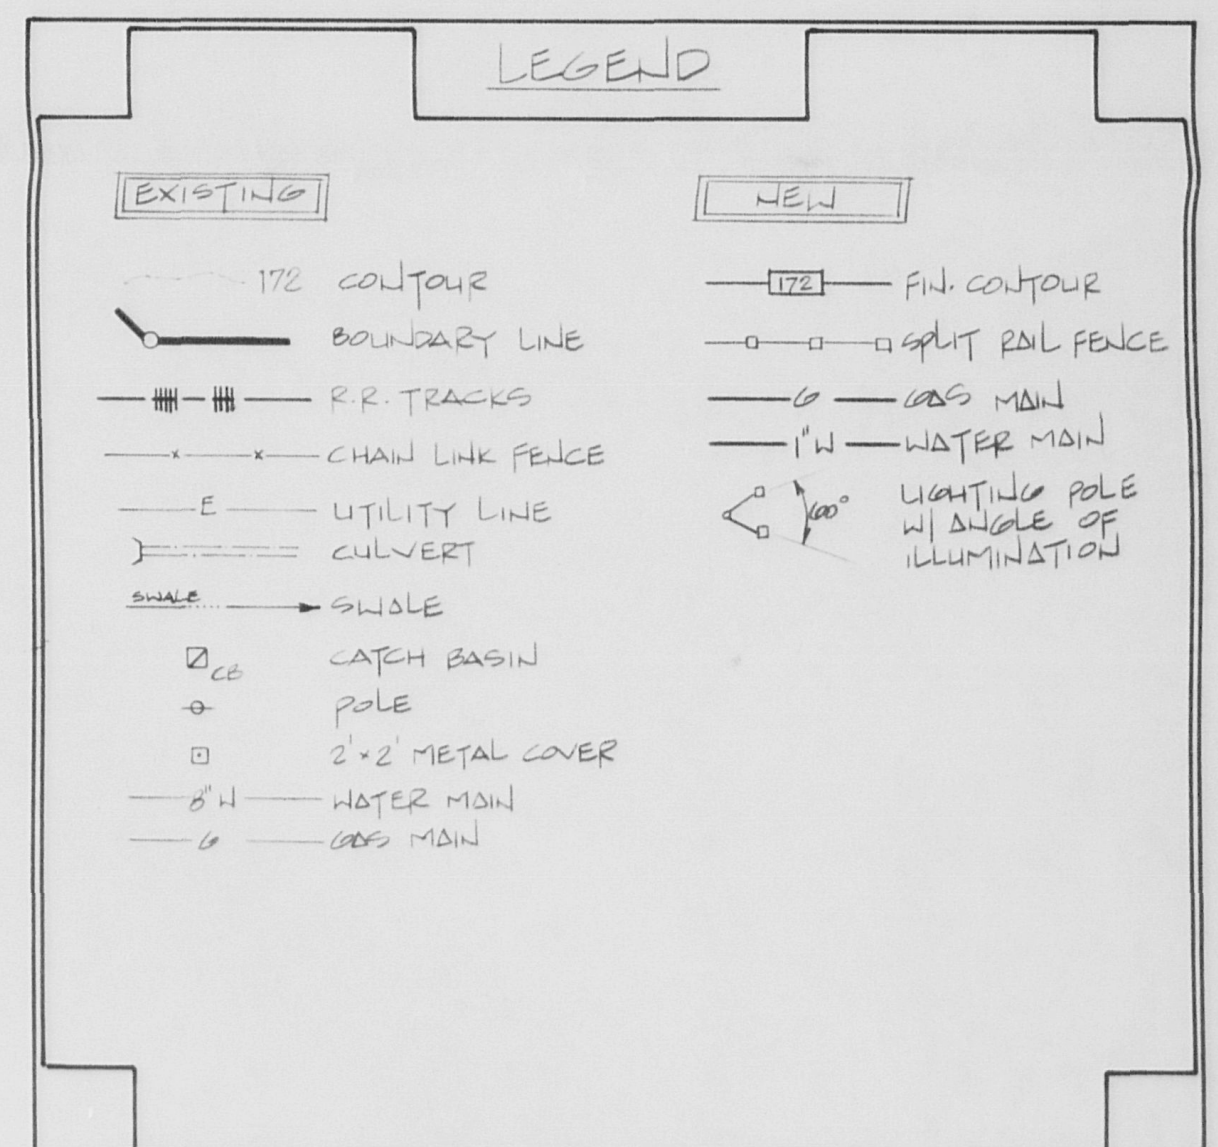 LEGEND
EXISTING
172 CONTOUR
BOUNDARY LINE
R.R. TRACKS
x x CHAIN LINK FENCE
E UTILITY LINE
CULVERT
SWALE SWALE
CB CATCH BASIN
POLE
2'x2' METAL COVER
8"W WATER MAIN
G GAS MAIN
NEW
172 FIN. CONTOUR
SPLIT RAIL FENCE
G GAS MAIN
1"W WATER MAIN
60° LIGHTING POLE
W/ ANGLE OF
ILLUMINATION